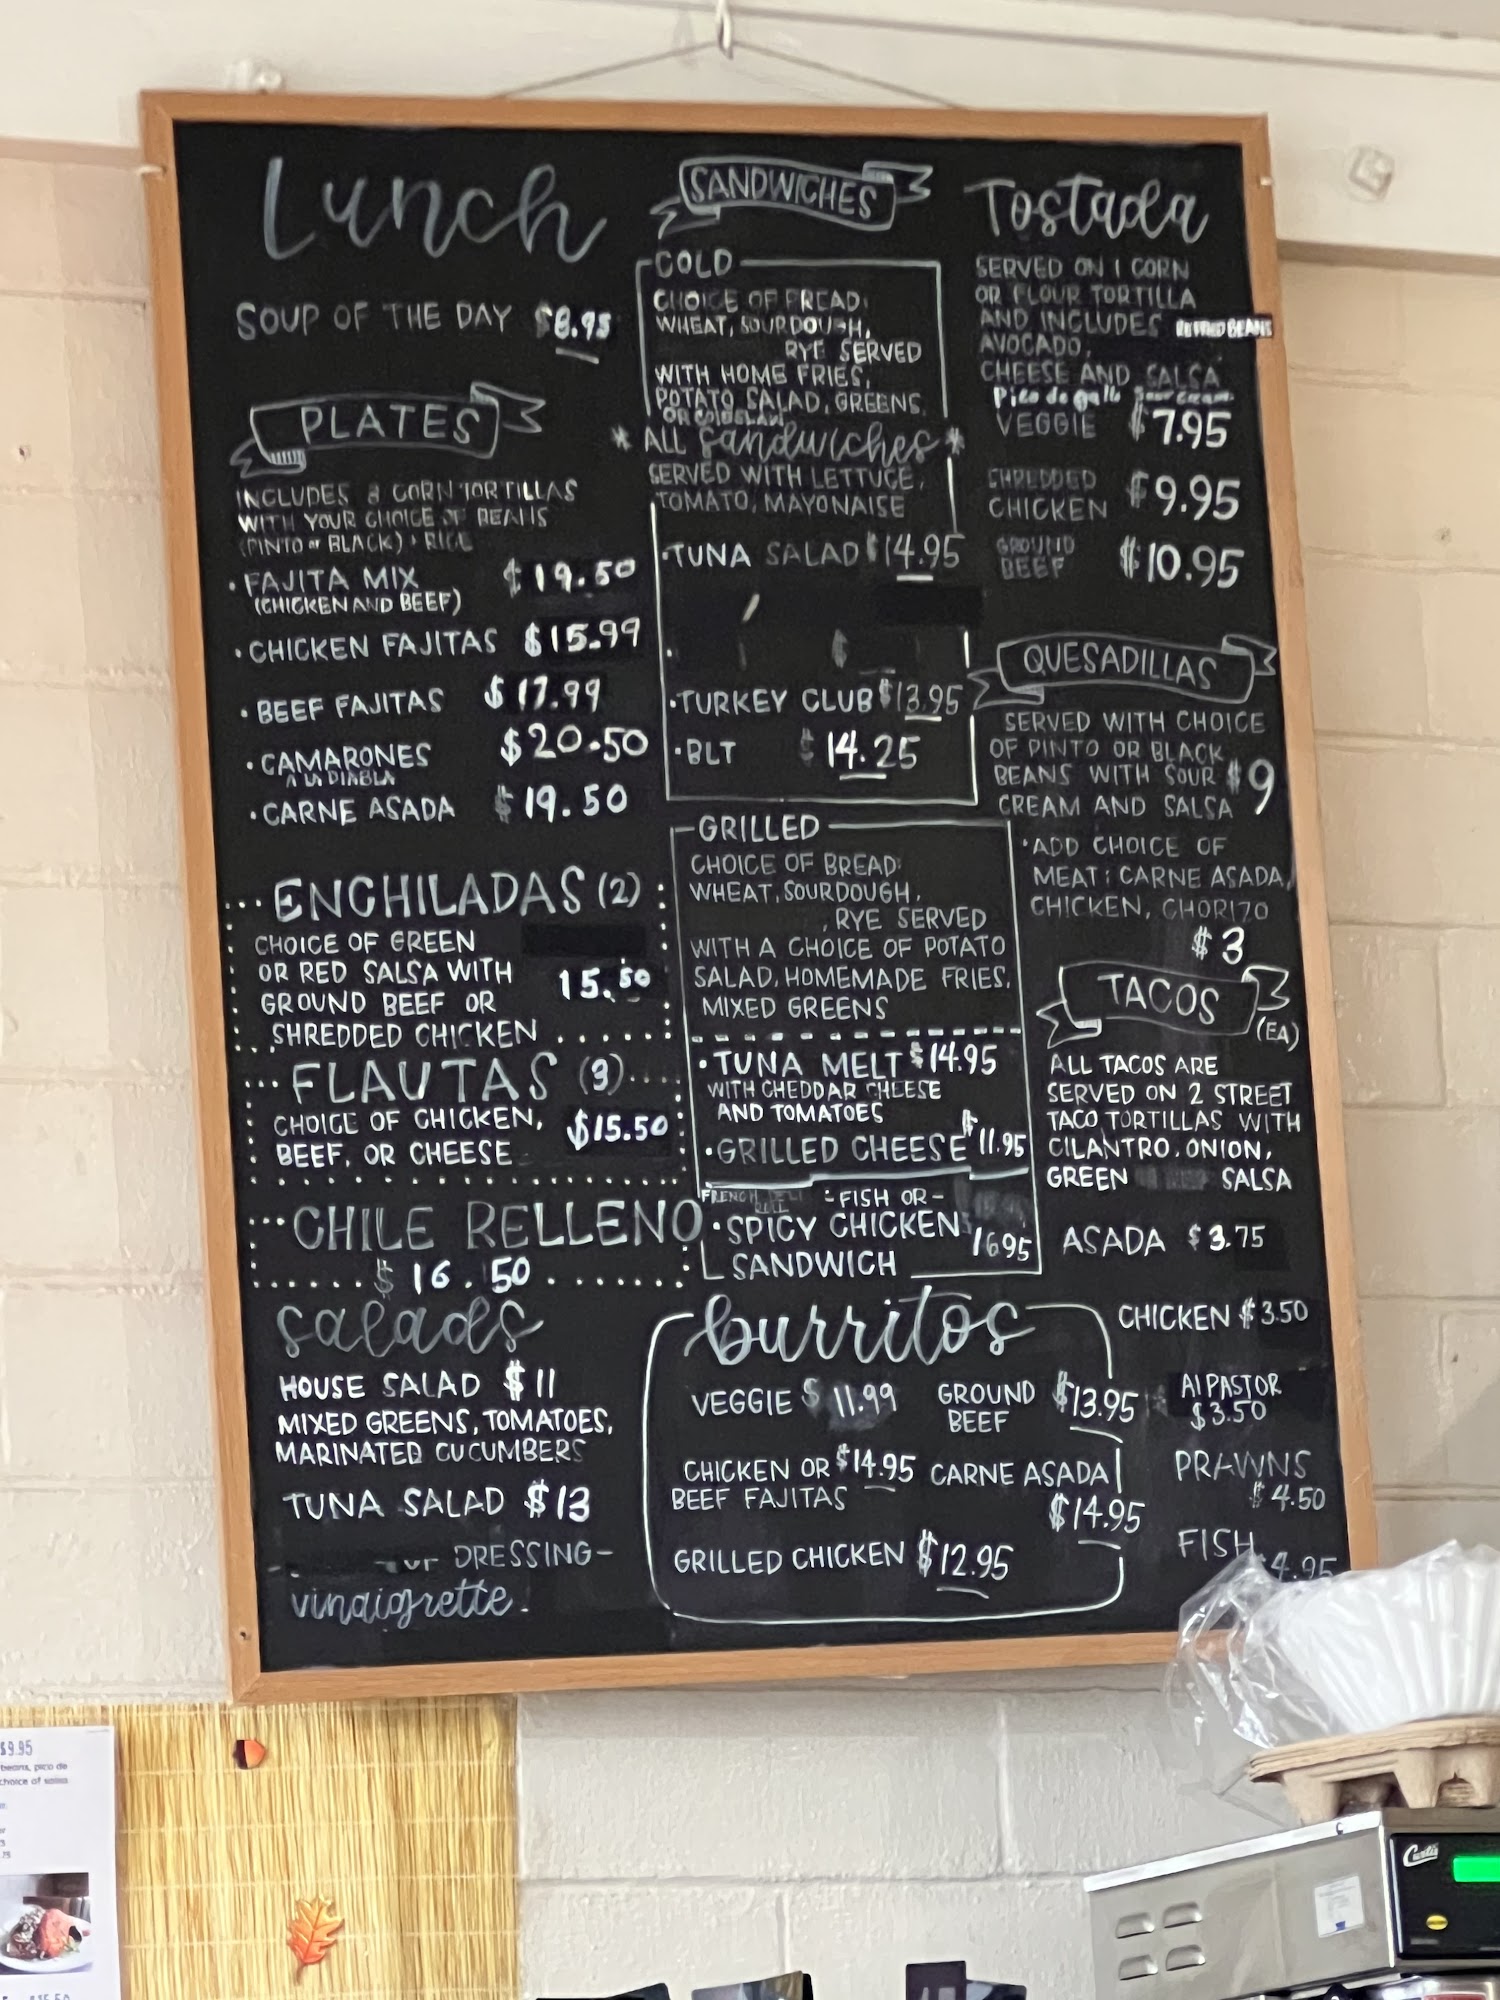 Lunch
SOUP OF THE DAY $8.95
PLATES
INCLUDES 3 CORN TORTILLAS
WITH YOUR CHOICE OF BEANS
(PINTO or BLACK) + RICE
• FAJITA MIX $19.50
(CHICKEN AND BEEF)
• CHICKEN FAJITAS $15.99
• BEEF FAJITAS $17.99
• CAMARONES $20.50
A LA DIABLA
• CARNE ASADA $19.50
ENCHILADAS (2)
CHOICE OF GREEN
OR RED SALSA WITH 15.50
GROUND BEEF OR
SHREDDED CHICKEN
FLAUTAS (3)
CHOICE OF CHICKEN, $15.50
BEEF, OR CHEESE
CHILE RELLENO
$16.50
salads
HOUSE SALAD $11
MIXED GREENS, TOMATOES,
MARINATED CUCUMBERS
TUNA SALAD $13
DRESSING-
vinaigrette.
SANDWICHES
COLD
CHOICE OF BREAD:
WHEAT, SOURDOUGH,
RYE SERVED
WITH HOME FRIES,
POTATO SALAD, GREENS,
OR COLESLAW
* ALL sandwiches *
SERVED WITH LETTUCE,
TOMATO, MAYONAISE
• TUNA SALAD $14.95
$
• TURKEY CLUB $13.95
• BLT $14.25
GRILLED
CHOICE OF BREAD:
WHEAT, SOURDOUGH,
, RYE SERVED
WITH A CHOICE OF POTATO
SALAD, HOMEMADE FRIES,
MIXED GREENS
• TUNA MELT $14.95
WITH CHEDDAR CHEESE
AND TOMATOES
• GRILLED CHEESE $11.95
FRENCH ROLL - FISH OR -
• SPICY CHICKEN 16.95
SANDWICH
burritos
VEGGIE $11.99
CHICKEN OR $14.95
BEEF FAJITAS
GRILLED CHICKEN $12.95
GROUND $13.95
BEEF
CARNE ASADA
$14.95
Tostada
SERVED ON 1 CORN
OR FLOUR TORTILLA
AND INCLUDES REFRIED BEANS
AVOCADO,
CHEESE AND SALSA
Pico de gallo Sour cream
VEGGIE $7.95
SHREDDED
CHICKEN $9.95
GROUND
BEEF $10.95
QUESADILLAS
SERVED WITH CHOICE
OF PINTO OR BLACK
BEANS WITH SOUR $9
CREAM AND SALSA
• ADD CHOICE OF
MEAT: CARNE ASADA,
CHICKEN, CHORIZO
$3
TACOS
(EA)
ALL TACOS ARE
SERVED ON 2 STREET
TACO TORTILLAS WITH
CILANTRO, ONION,
GREEN SALSA
ASADA $3.75
CHICKEN $3.50
Al PASTOR
$3.50
PRAWNS
$4.50
FISH
4.95
$9.95
beans, pico de
choice of salsa
Curtis